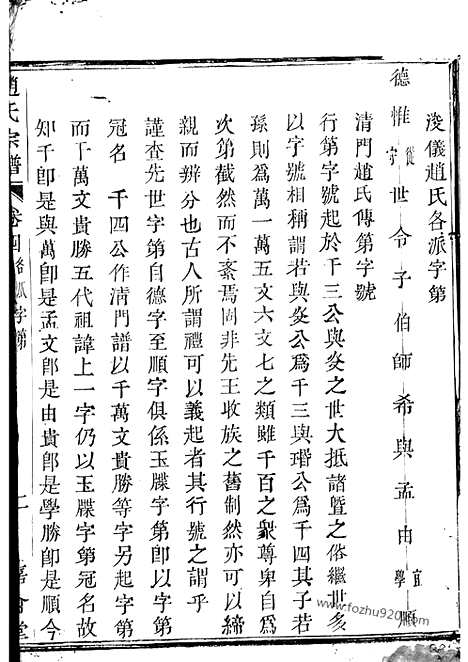 浚儀趙氏各派字第
德惟從守世令子伯師希與孟由宜學順
清門趙氏傳第字號
行第字號起於千三公與㷋之世大抵諸暨之俗繼世多
以字號相稱謂若與㷋公爲千三與瑨公爲千四其子若
孫則爲萬一萬五文六文七之類雖千百之衆尊卑自爲
次第截然而不紊焉固非先王收族之舊制然亦可以締
親而辨分也古人所謂禮可以義起者其行號之謂乎
謹查先世字第自德字至順字俱係玉牒字第卽以字第
冠名 千四公作清門譜以千萬文貴勝等字另起字第
而千萬文貴勝五代祖諱上一字仍以玉牒字第冠名故
知千卽是與萬卽是孟文卽是由貴卽是學勝卽是順今
趙氏宗譜
卷四 各派字第
二
嘉會堂
www.fozhu920.com